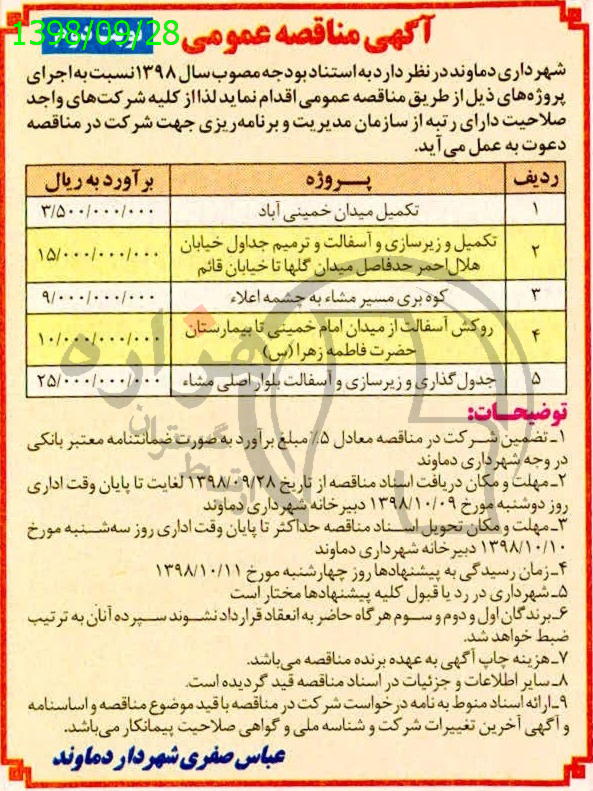 1398/09/28
آگهی مناقصه عمومی
شهرداری دماوند در نظر دارد به استناد بودجه مصوب سال ۱۳۹۸ نسبت به اجرای
پروژه‌های ذیل از طریق مناقصه عمومی اقدام نماید لذا از کلیه شرکت‌های واجد
صلاحیت دارای رتبه از سازمان مدیریت و برنامه‌ریزی جهت شرکت در مناقصه
دعوت به عمل می‌آید.
ردیف پـــروژه برآورد به ریال
۱ تکمیل میدان خمینی آباد ۳/۵۰۰/۰۰۰/۰۰۰
۲ تکمیل و زیرسازی و آسفالت و ترمیم جداول خیابان هلال‌احمر حدفاصل میدان گلها تا خیابان قائم ۱۵/۰۰۰/۰۰۰/۰۰۰
۳ کوه بری مسیر مشاء به چشمه اعلاء ۹/۰۰۰/۰۰۰/۰۰۰
۴ روکش آسفالت از میدان امام خمینی تا بیمارستان حضرت فاطمه زهرا (س) ۱۰/۰۰۰/۰۰۰/۰۰۰
۵ جدول‌گذاری و زیرسازی و آسفالت بلوار اصلی مشاء ۲۵/۰۰۰/۰۰۰/۰۰۰
توضیحـــات:
۱ـ تضمین شـرکت در مناقصه معادل ۵٪ مبلغ برآورد به صورت ضمانتنامه معتبر بانکی
در وجه شهرداری دماوند
۲ـ مهلت و مکان دریافت اسناد مناقصه از تاریخ ۱۳۹۸/۰۹/۲۸ لغایت تا پایان وقت اداری
روز دوشنبه مورخ ۱۳۹۸/۱۰/۰۹ دبیرخانه شهرداری دماوند
۳ـ مهلت و مکان تحویل اسـناد مناقصه حداکثر تا پایان وقت اداری روز سه‌شـنبه مورخ
۱۳۹۸/۱۰/۱۰ دبیرخانه شهرداری دماوند
۴ـ زمان رسیدگی به پیشنهادها روز چهارشنبه مورخ ۱۳۹۸/۱۰/۱۱
۵ـ شهرداری در رد یا قبول کلیه پیشنهادها مختار است
۶ـ برندگان اول و دوم و سـوم هرگاه حاضر به انعقاد قرارداد نشـوند سـپرده آنان به ترتیب
ضبط خواهد شد.
۷ـ هزینه چاپ آگهی به عهده برنده مناقصه می‌باشد.
۸ـ سایر اطلاعات و جزئیات در اسناد مناقصه قید گردیده است.
۹ـ ارائه اسناد منوط به نامه درخواست شرکت در مناقصه با قید موضوع مناقصه و اساسنامه
و آگهی آخرین تغییرات شرکت و شناسه ملی و گواهی صلاحیت پیمانکار می‌باشد.
عباس صفری شهردار دماوند